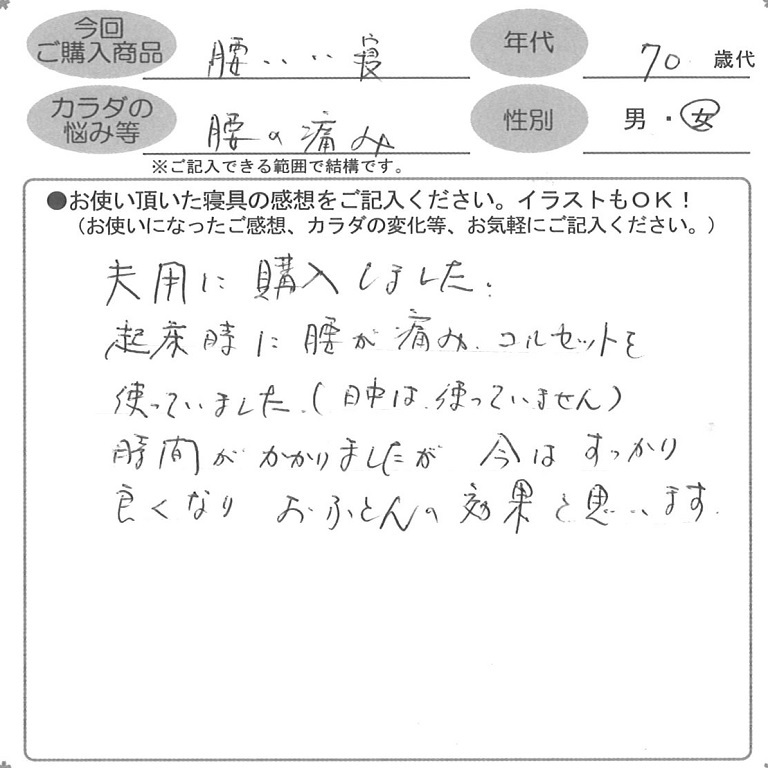 今回
ご購入商品
腰いい寝
年代
70 歳代
カラダの
悩み等
腰の痛み
性別
男・女
※ご記入できる範囲で結構です。
●お使い頂いた寝具の感想をご記入ください。イラストもOK！
（お使いになったご感想、カラダの変化等、お気軽にご記入ください。）
夫用に購入しました。
起床時に腰が痛み、コルセットを
使っていました。（日中は、使っていません）
時間がかかりましたが 今はすっかり
良くなり おふとんの効果と思います。